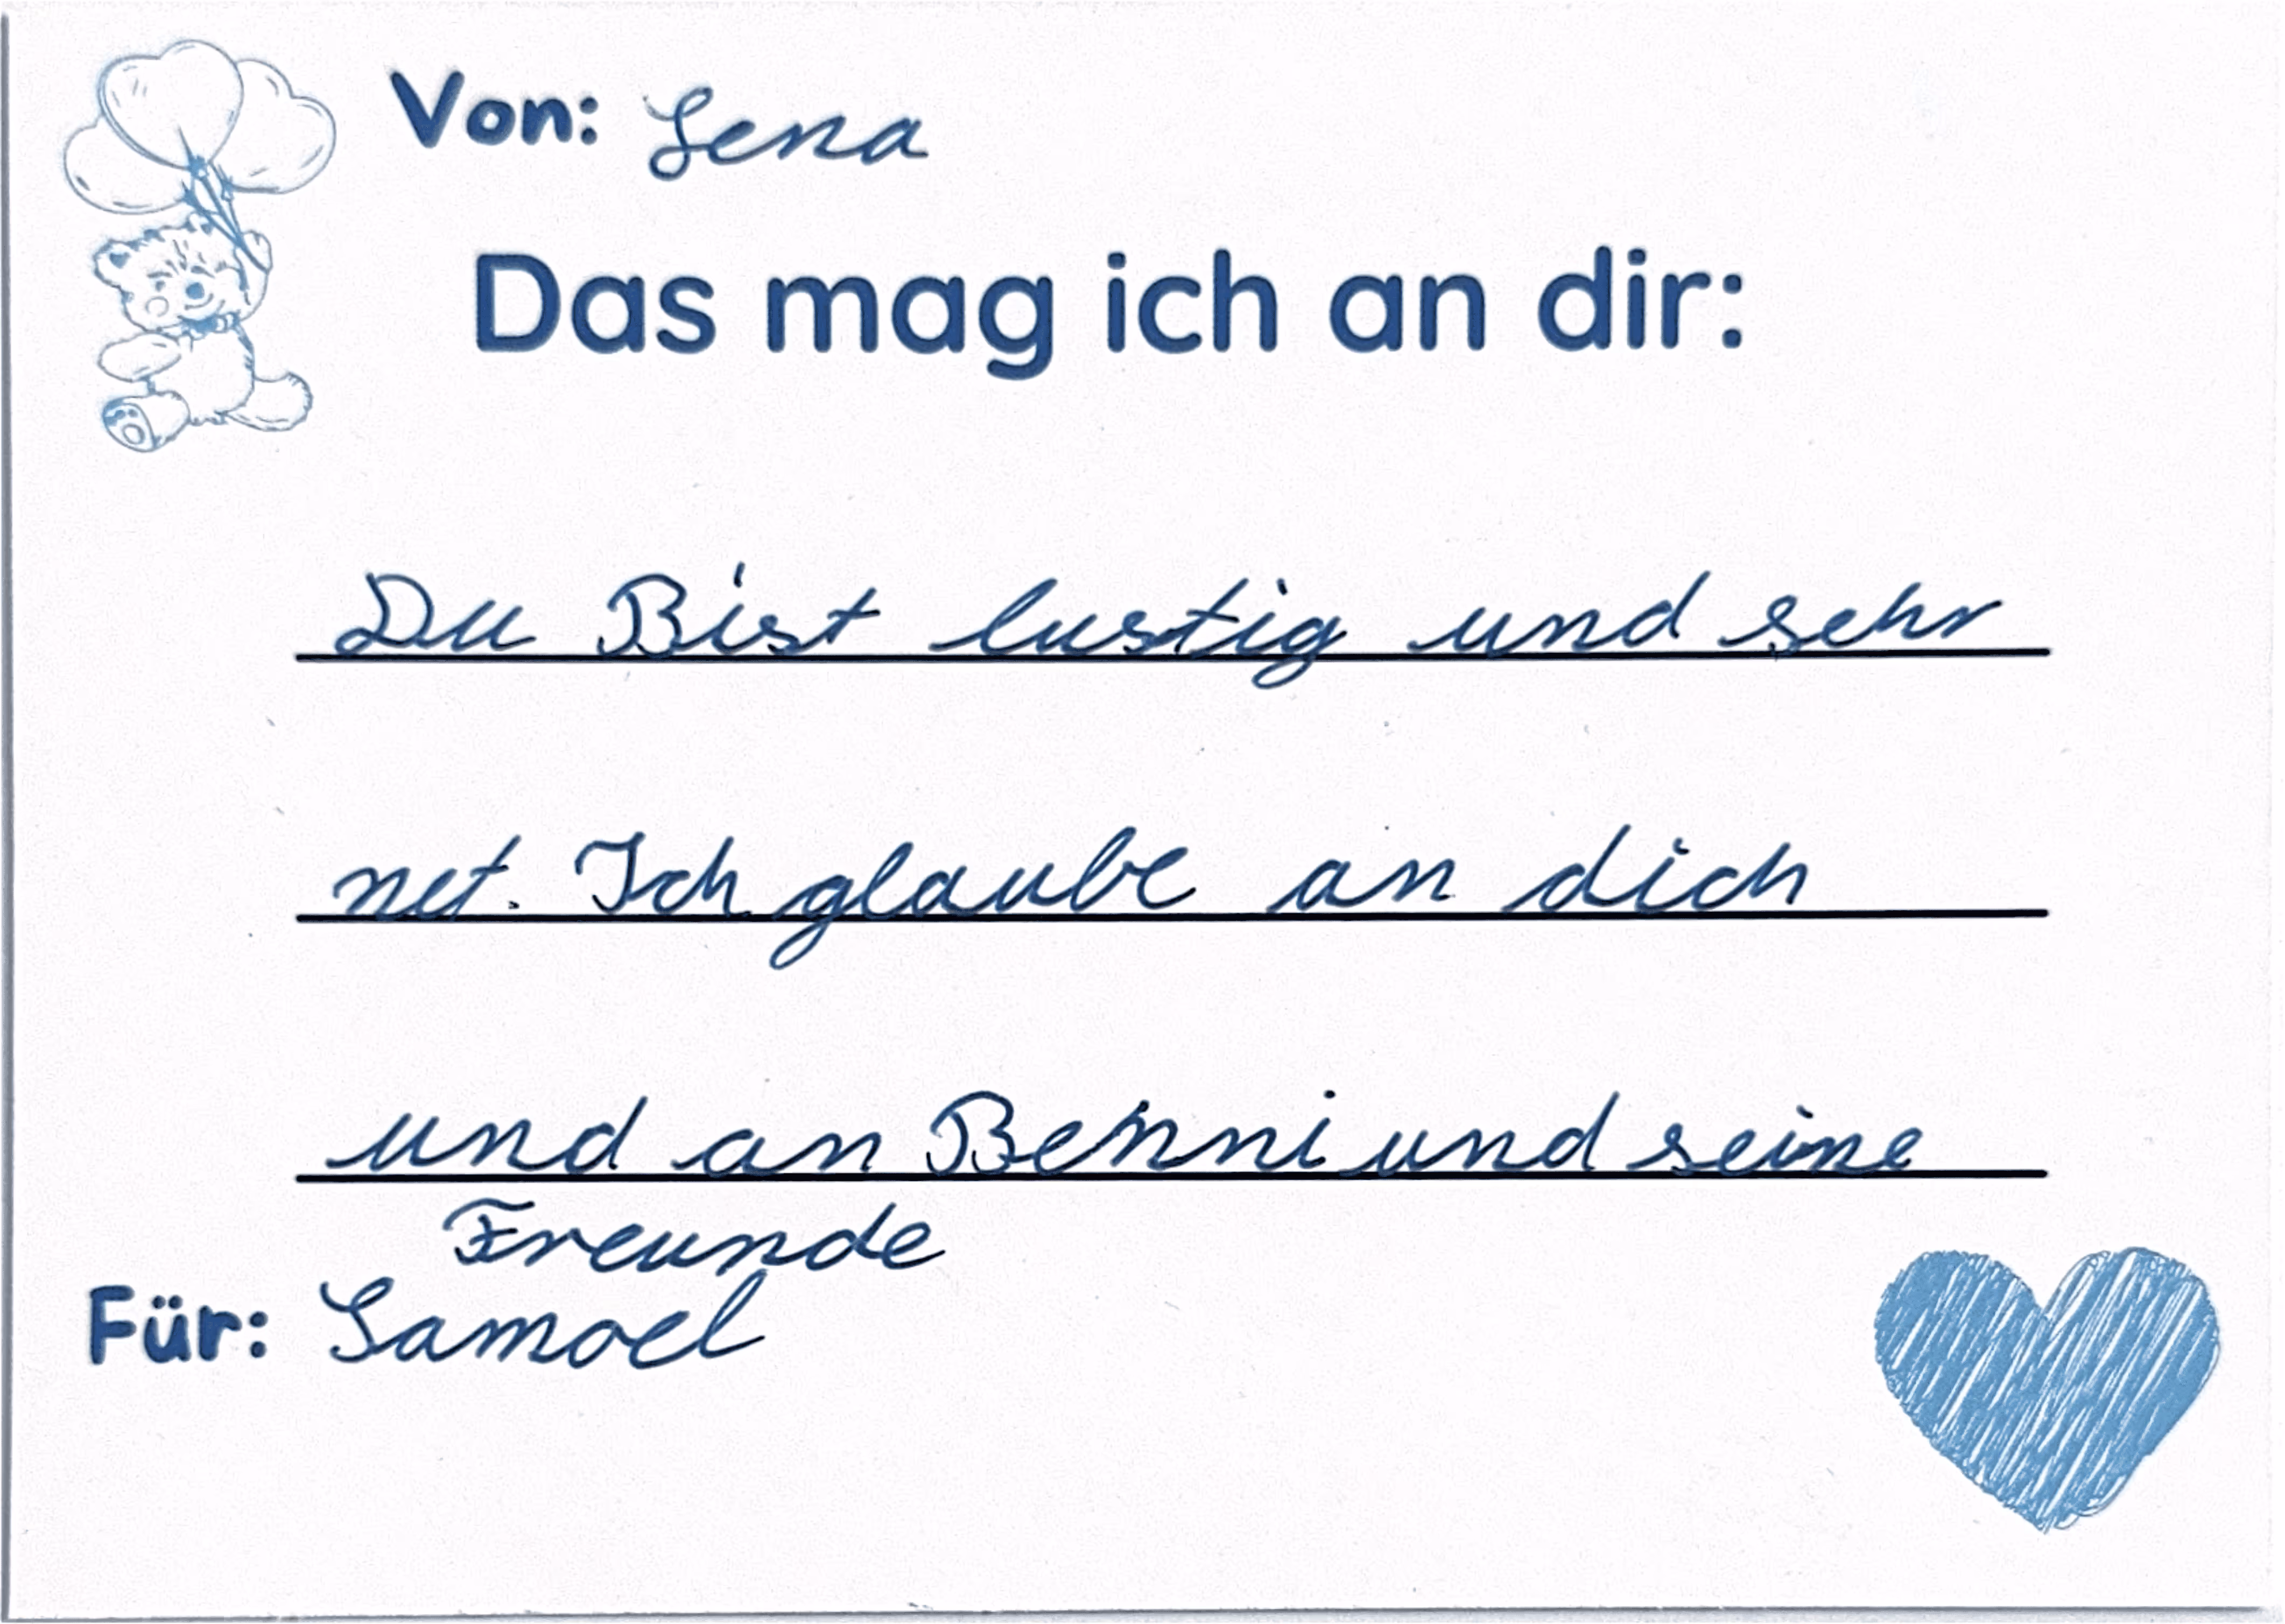 Von: Lena
Das mag ich an dir:
Du Bist lustig und sehr
net. Ich glaube an dich
und an Benni und seine
Freunde
Für: Samoel